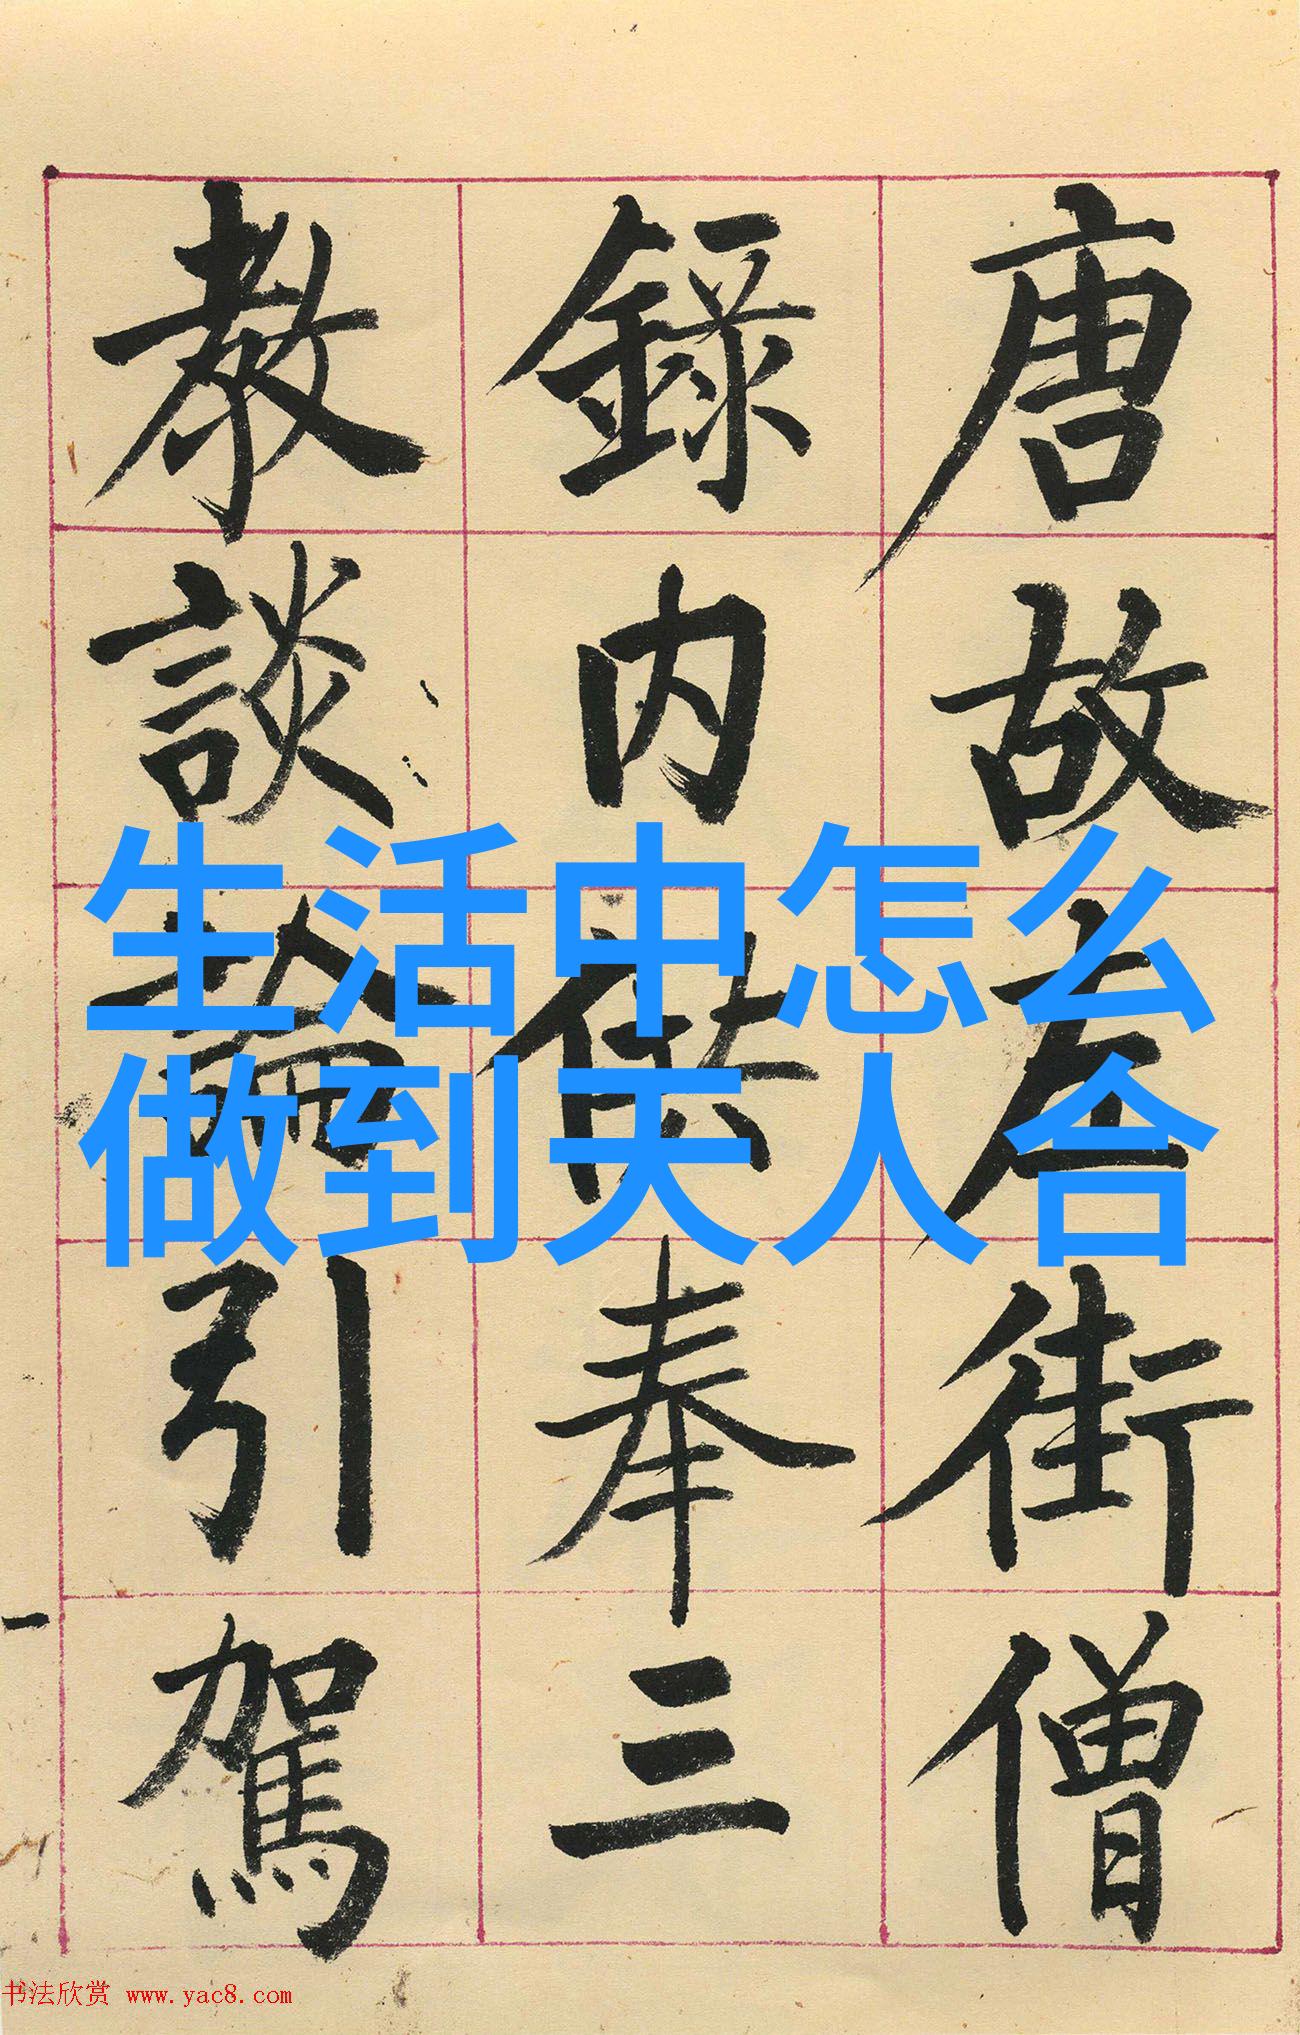 唐故左街僧
錄内供奉三
教談論引駕
生活中怎么
做到天人合
书法欣赏 www.yac8.com